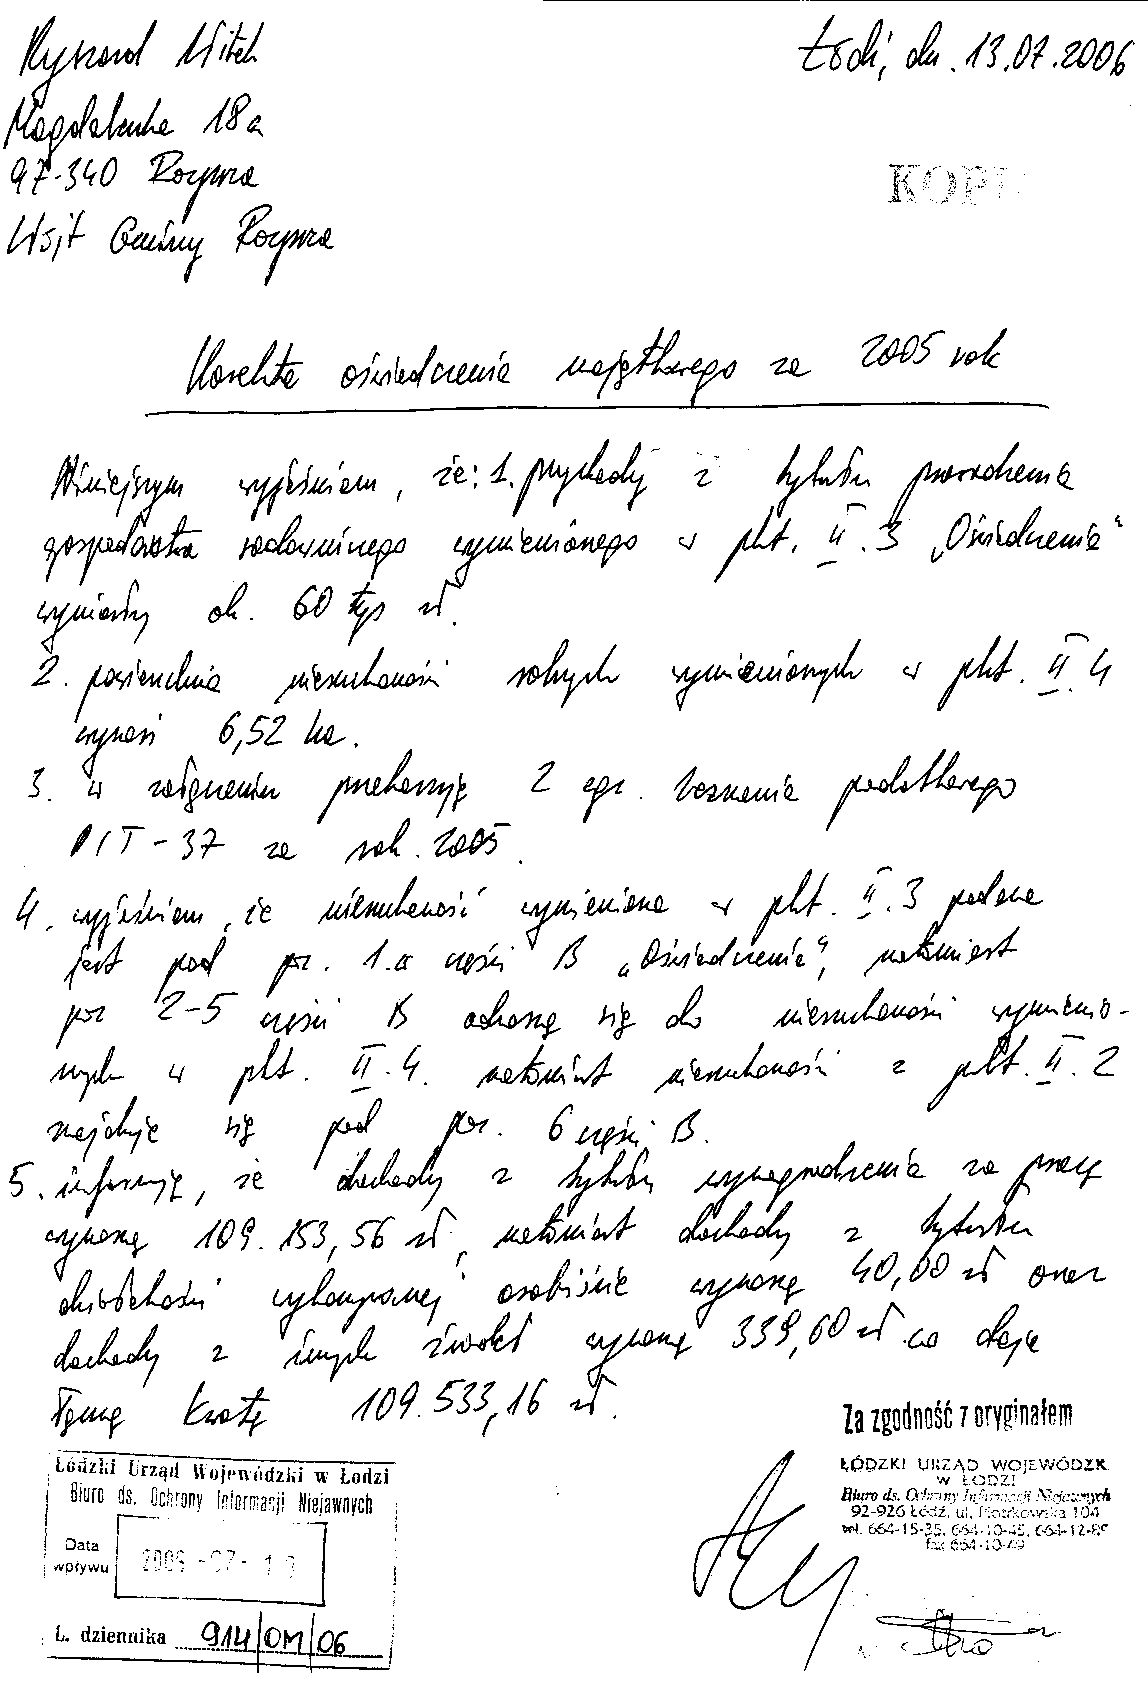 Ryszard Witek
Łódź, dn. 13.07.2006
Magdalenka 18a
97-340 Rozprza
KOPI
Wójt Gminy Rozprza
Korekta oświadczenia majątkowego za 2005 rok
Niniejszym wyjaśniam, że: 1. przychody z tytułu prowadzenia
gospodarstwa sadowniczego wymienionego w pkt. II.3 „Oświadczenia"
wyniosły ok. 60 tys zł.
2. powierzchnia nieruchomości rolnych wymienionych w pkt. II.4
wynosi 6,52 ha.
3. w załączeniu przekazuję 2 egz. zeznania podatkowego
PIT-37 za rok 2005
4. wyjaśniam, że nieruchomość wymieniona w pkt. II.3 podana
jest pod poz. 1.a części B „Oświadczenia", natomiast
poz 2-5 części B odnoszą się do nieruchomości wymienio-
nych w pkt. II.4. natomiast nieruchomości z pkt. II.2
znajduje się pod poz. 6 części B.
5. informuję, że dochody z tytułu wynagrodzenia za pracę
wynoszą 109.153,56 zł, natomiast dochody z tytułu
działalności wykonywanej osobiście wynoszą 40,00 zł oraz
dochody z innych źródeł wynoszą 339,60 zł co daje
łączną kwotę 109.533,16 zł.
Za zgodność z oryginałem
ŁÓDZKI URZĄD WOJEWÓDZK
W ŁODZI
Biuro ds. Ochrony Informacji Niejawnych
92-926 Łódź, ul. Piotrkowska 104
tel. 664-15-35, 664-10-45, 664-12-89
fax 664-10-49
Łódzki Urząd Wojewódzki w Łodzi
Biuro ds. Ochrony Informacji Niejawnych
Data
wpływu
L. dziennika 914/OM/06